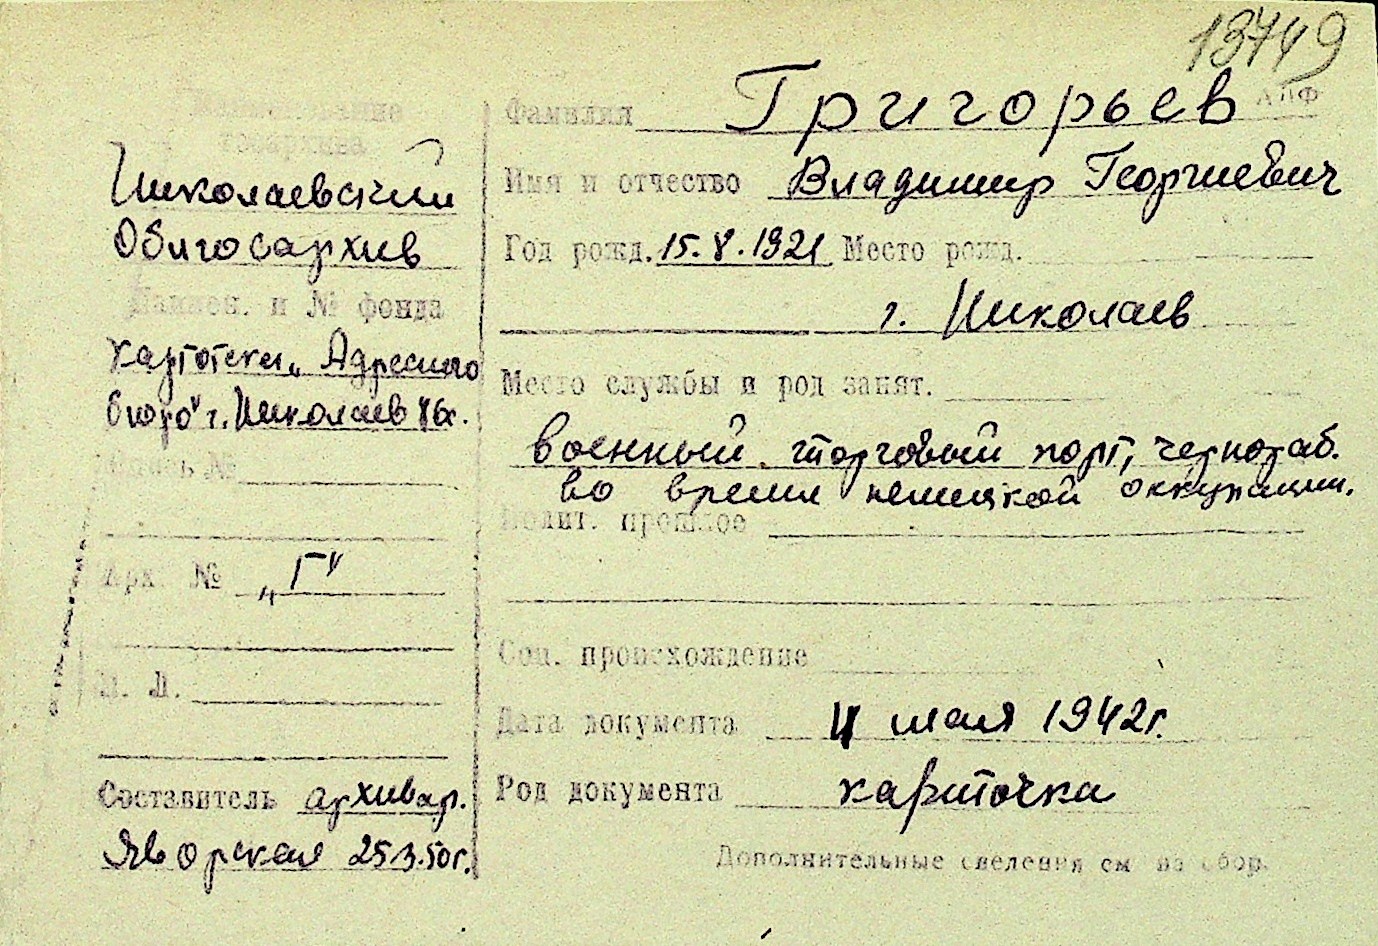 13749
АПФ
Наименование
госархива
Николаевский
Облгосархив
Наимен. и № фонда
картотека „Адресного
бюро" г. Николаев
Опись №
Арх. № „Г"
Л. Л.
Составитель архивар.
Яворская 25.3.50г.
Фамилия Григорьев
Имя и отчество Владимир Георгиевич
Год рожд. 15.V.1921 Место рожд.
г. Николаев
Место службы и род занят.
военный торговый порт, чернораб.
во время немецкой оккупации.
Полит. прошлое
Соц. происхождение
Дата документа 4 мая 1942г.
Род документа карточка
Дополнительные сведения см на обор.